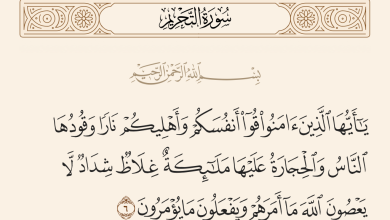 سُورَةُ التَّحْرِيمِ
بِسْمِ اللَّهِ الرَّحْمَٰنِ الرَّحِيمِ
يَٰٓأَيُّهَا ٱلَّذِينَ ءَامَنُوا۟ قُوٓا۟ أَنفُسَكُمْ وَأَهْلِيكُمْ نَارًا وَقُودُهَا
ٱلنَّاسُ وَٱلْحِجَارَةُ عَلَيْهَا مَلَٰٓئِكَةٌ غِلَاظٌ شِدَادٌ لَّا
يَعْصُونَ ٱللَّهَ مَآ أَمَرَهُمْ وَيَفْعَلُونَ مَا يُؤْمَرُونَ ٦